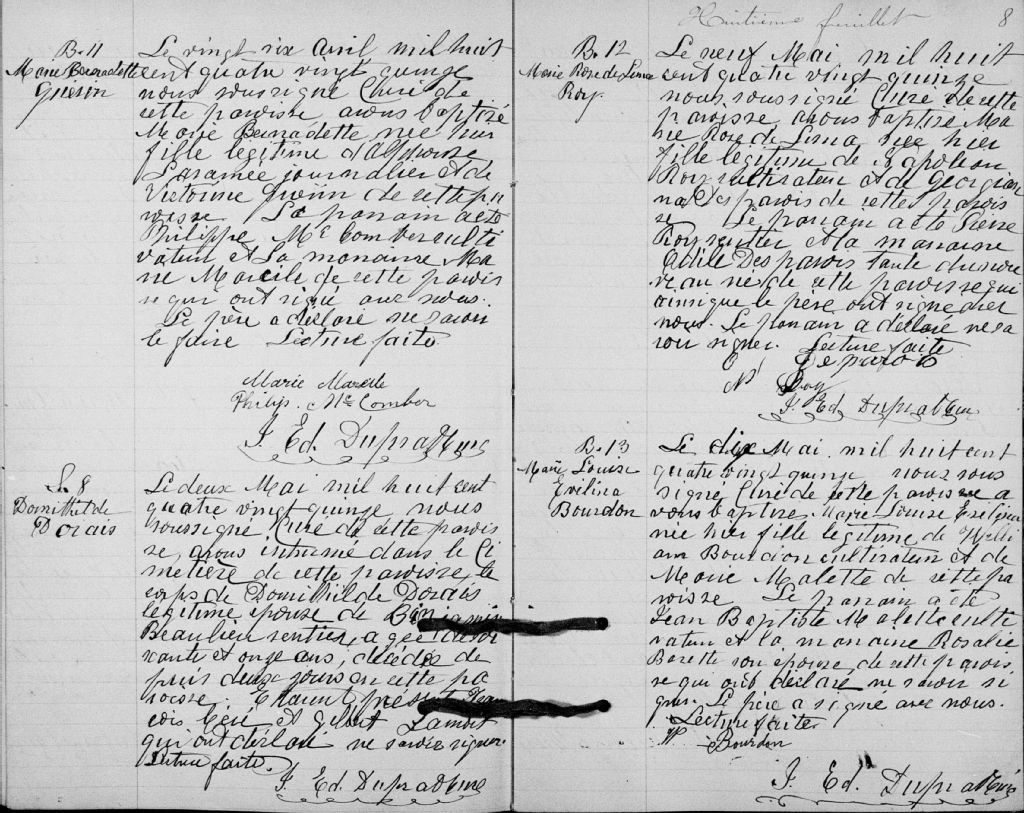 B. 11
Marie Bernadette
Guérin
Le vingt six avril mil huit
cent quatre vingt quinze
nous soussigné Curé de
cette paroisse avons baptisé
Marie Bernadette née hier
fille légitime d'Alphonse
Laramée journalier et de
Victorine Guérin de cette pa
roisse. Le parrain a été
Philippe Mc Comber culti
vateur et la marraine Ma
rie Marcile de cette parois
se qui ont signé avec nous.
Le père a déclaré ne savoir
le faire Lecture faite
Marie Marcile
Philip. Mc Comber
J. Ed. Dupras Ptre
S. 8
Domithilde
Dorais
Le deux Mai mil huit cent
quatre vingt quinze nous
soussigné Curé de cette parois
se, avons inhumé dans le Ci
metière de cette paroisse, le
corps de Domithilde Dorais
légitime épouse de Benjamin
Beaulieu rentier, agée de soi
xante et onze ans, décédée de
puis deux jours en cette pa
roisse. Etaient présents Fran
cois et Gilbert
qui ont déclaré ne savoir signer.
Lecture faite.
J. Ed. Dupras Ptre
Huitième feuillet 8
B. 12
Marie Rose de Lima
Roy.
Le neuf Mai mil huit
cent quatre vingt quinze
nous soussigné Curé de cette
paroisse avons baptisé Ma
rie Rose de Lima née hier
fille légitime de Napoléon
Roy cultivateur et de Georgian
na Desparois de cette parois
se Le parrain a été Pierre
Roy rentier et la marraine
Odile Desparois tante du nou
veau né de cette paroisse qui
ainsi que le père ont signé avec
nous. Le parrain a déclaré ne sa
voir signer. Lecture faite
O Deparois
N Roy
J. Ed. Dupras Ptre
B. 13
Marie Louise
Evélina
Bourdon
Le dix Mai mil huit cent
quatre vingt quinze nous sous
signé Curé de cette paroisse a
vons baptisé Marie Louise Evelina
née hier fille légitime de Willi
am Bourdon cultivateur et de
Marie Malette de cette pa
roisse Le parrain a été
Jean Baptiste Malette culti
vateur et la marraine Rosalie
Barette son épouse de cette parois
se qui ont déclaré ne savoir si
gner. Le père a signé avec nous.
Lecture faite.
W. Bourdon
J. Ed. Dupras Ptre